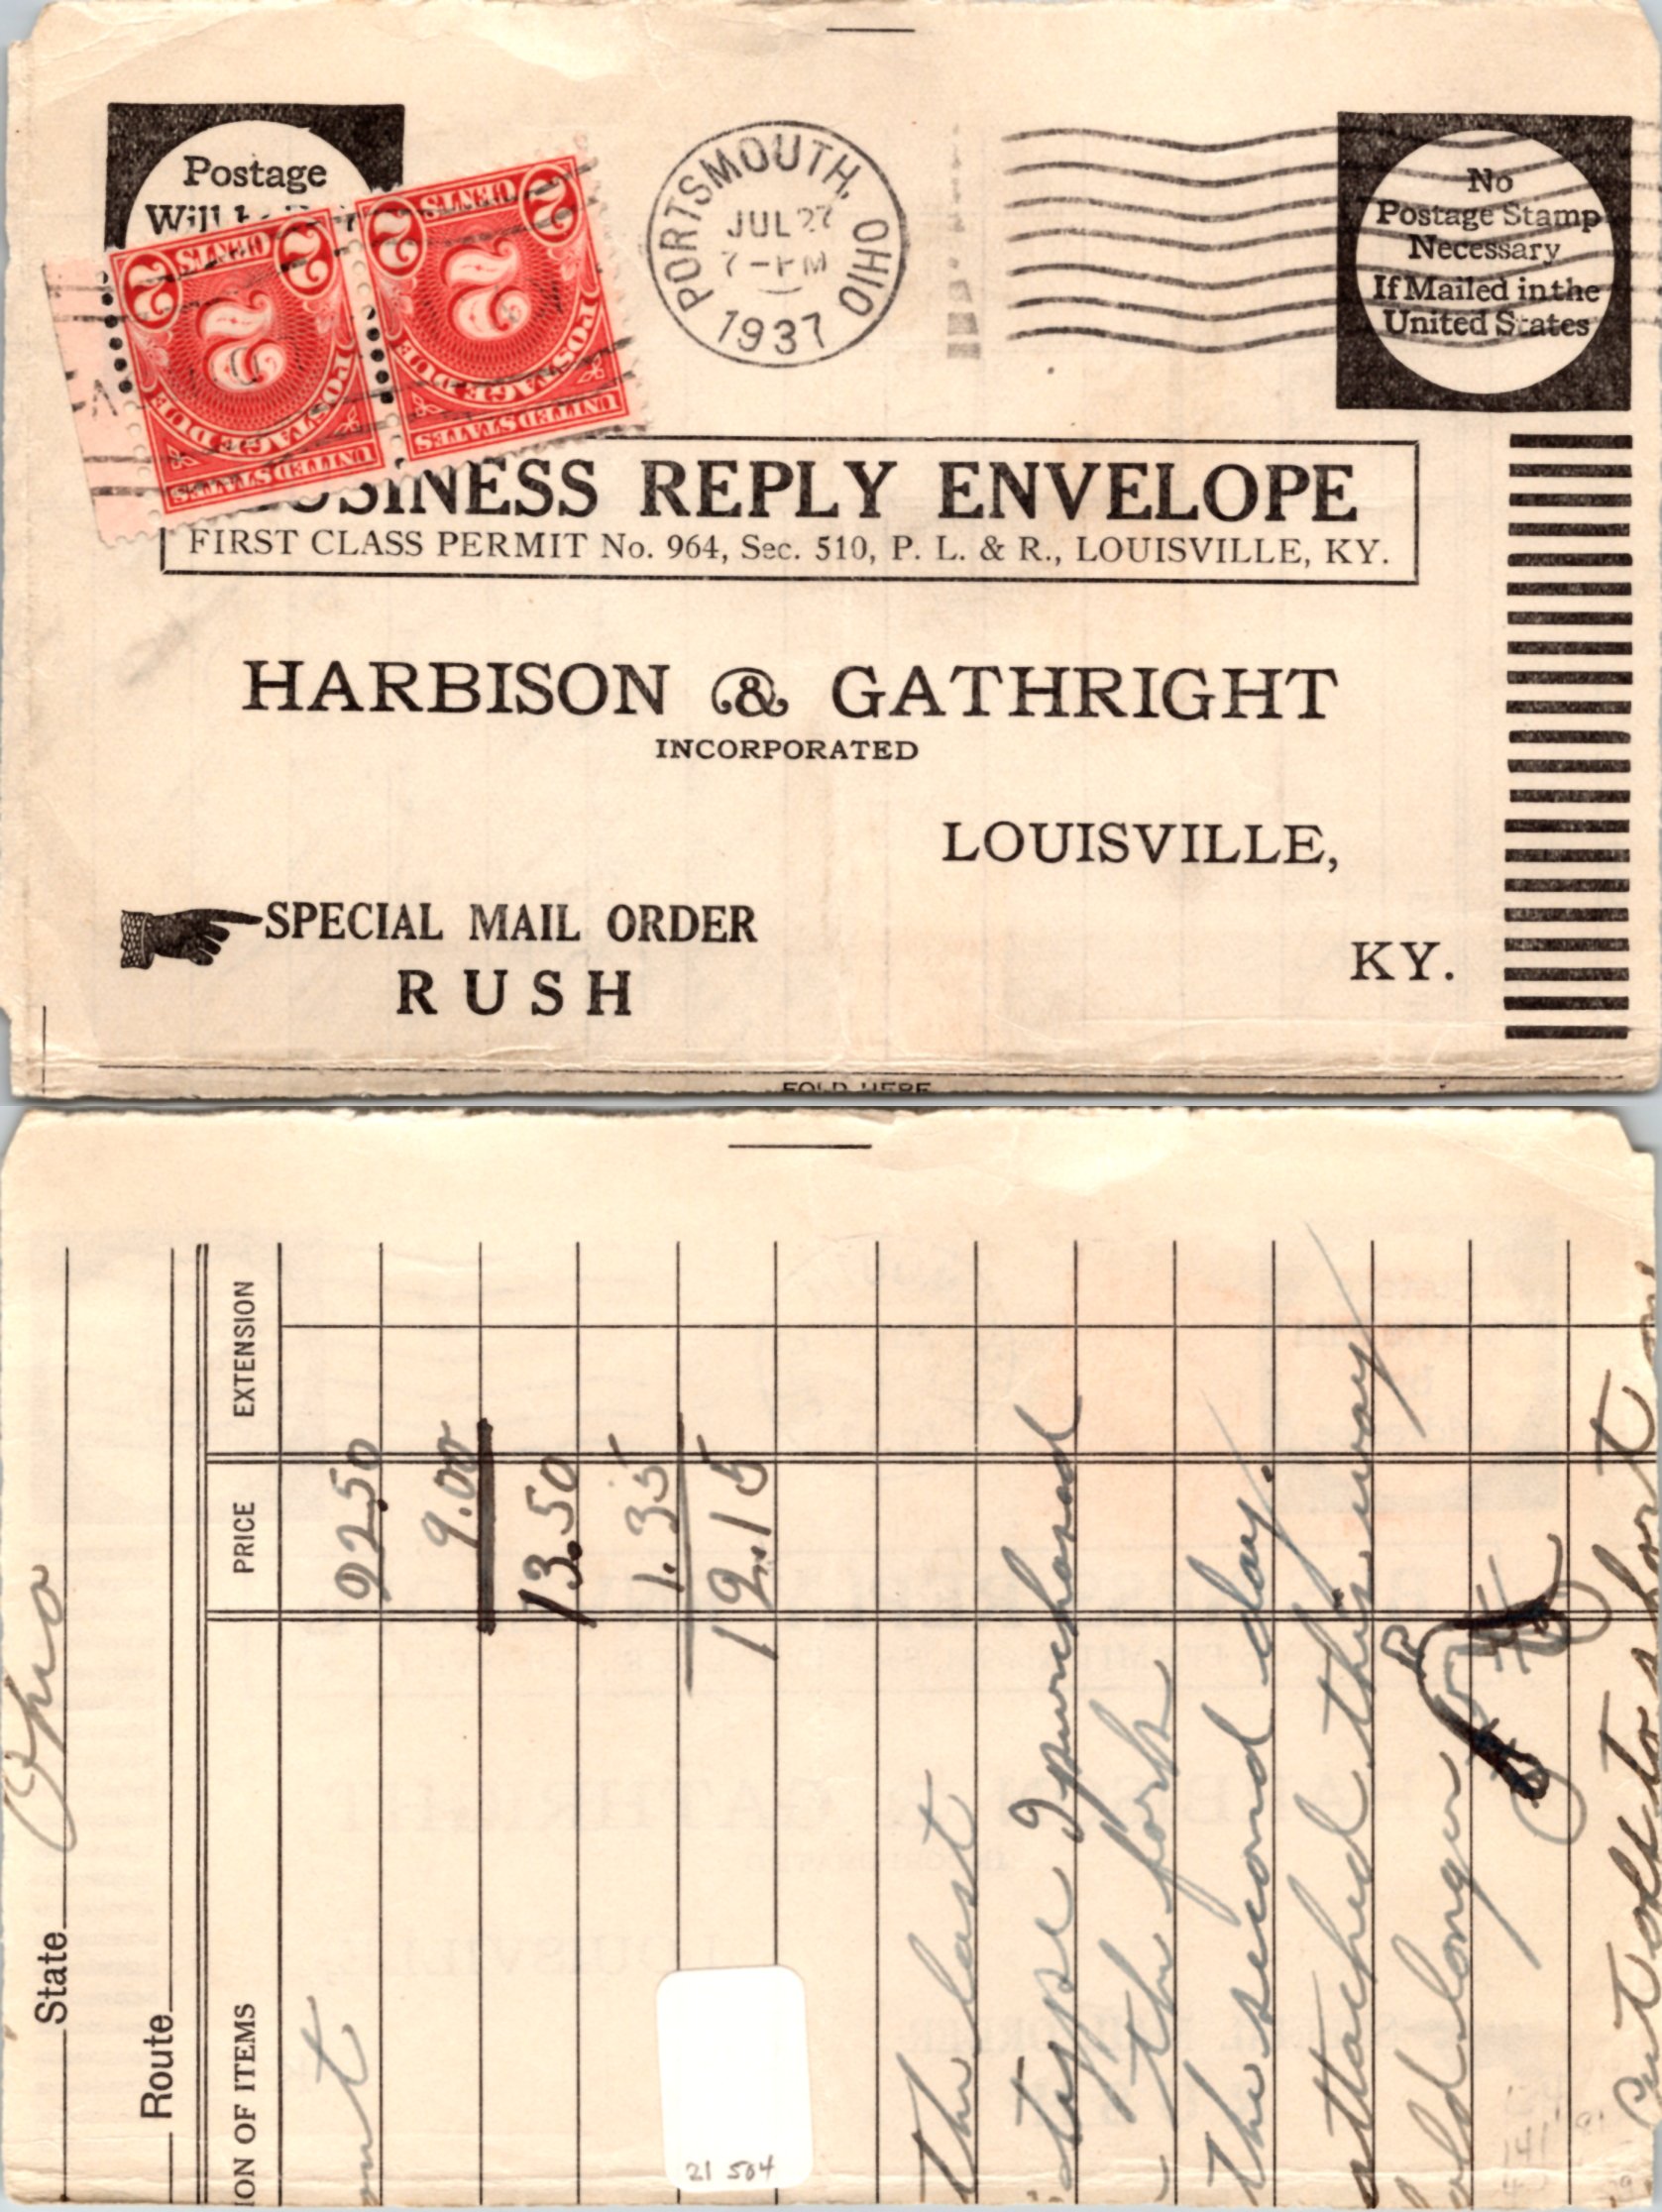 Postage
Will be
2 CENTS 2
2
POSTAGE DUE
UNITED STATES
2 CENTS 2
2
POSTAGE DUE
UNITED STATES
PORTSMOUTH, OHIO
JUL 27
7-PM
1937
No
Postage Stamp
Necessary
If Mailed in the
United States
BUSINESS REPLY ENVELOPE
FIRST CLASS PERMIT No. 964, Sec. 510, P. L. & R., LOUISVILLE, KY.
HARBISON & GATHRIGHT
INCORPORATED
LOUISVILLE,
KY.
SPECIAL MAIL ORDER
RUSH
FOLD HERE
State Ohio
Route
ION OF ITEMS PRICE EXTENSION
22.50
9.00
13.50
1.35
12.15
the last
type I purchased
the fork
the second day.
attached this way
old longer
Cut off to short
21 504
141